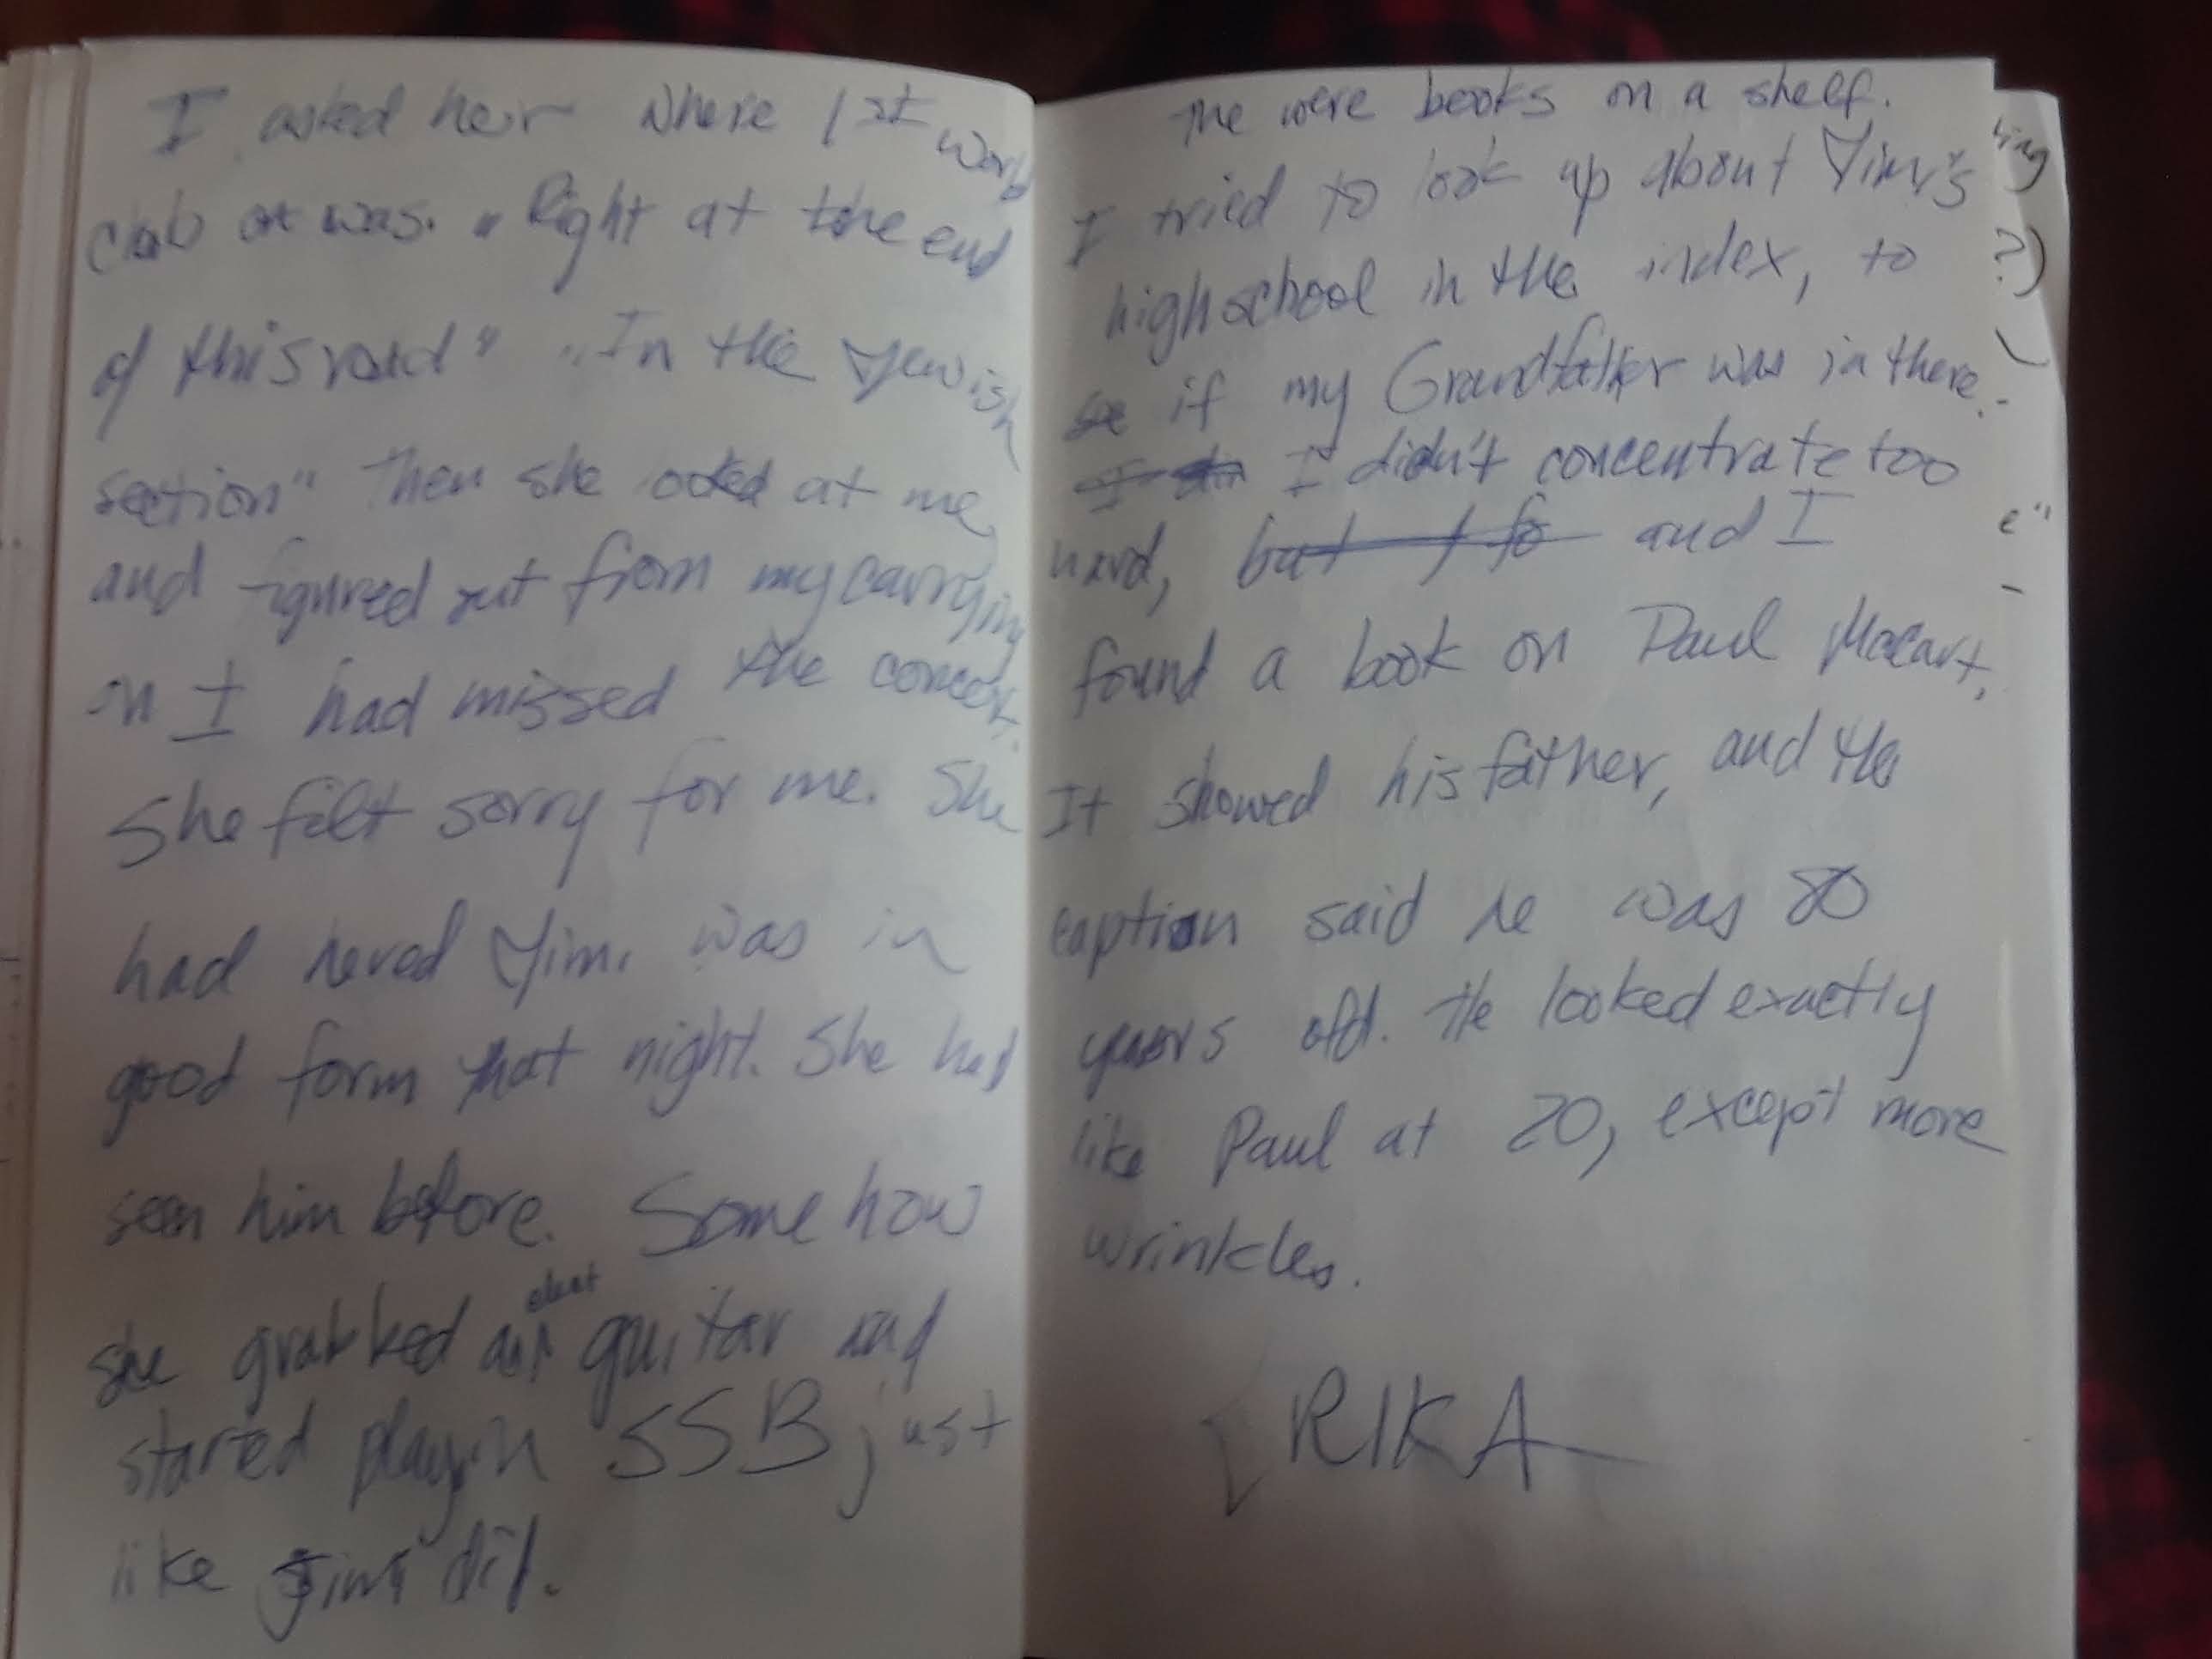 I asked her where 1st world
club at was. "Right at the end
of this road" "In the Jewish
section" Then she ooked at me,
and figured out from my carrying
on I had missed the concert.
She felt sorry for me. She
had Jim. was in
good form that night. She had
seen him before. Some how
she grabbed an elect guitar and
started playin SSB, just
like Jimi did.
The were books on a shelf.
I tried to look up about Jimi's
highschool in the index, to
see if my Grandfather was in there.
I didn't concentrate too
hard, but I fo and I
found a book on Paul Macart.
It showed his father, and the
caption said he was 80
years old. He looked exactly
like Paul at 20, except more
wrinkles.
RIKA
ing
?)
e"